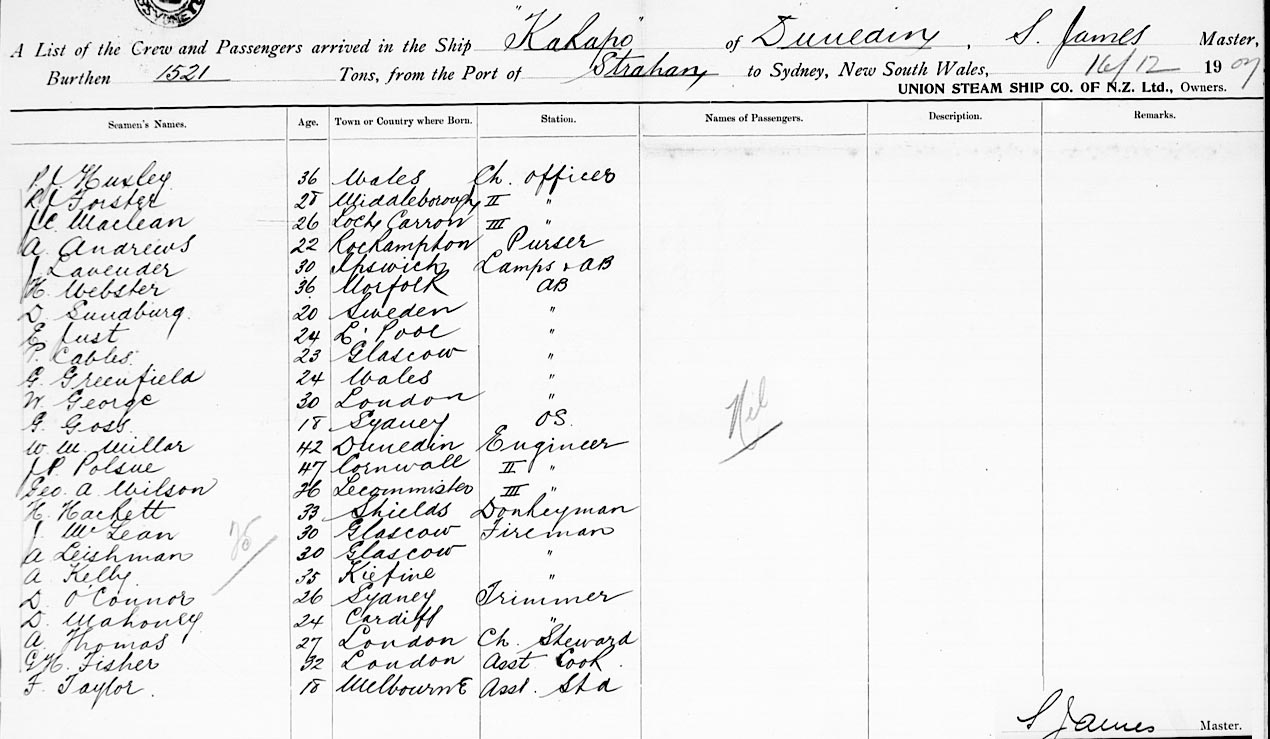 A List of the Crew and Passengers arrived in the Ship "Kakapo" of Dunedin, S. James Master,
Burthen 1521 Tons, from the Port of Strahan to Sydney, New South Wales, 16/12 1907
UNION STEAM SHIP CO. OF N.Z. Ltd., Owners.
Seamen's Names. Age. Town or Country where Born. Station. Names of Passengers. Description. Remarks.
P.J. Huxley 36 Wales Ch. Officer
R.J. Forster 28 Middleborough II "
J.C. Maclean 26 Loch Carron III "
A. Andrews 22 Rockhampton Purser
J. Lavender 30 Ipswich Lamps & AB
H. Webster 36 Norfolk AB
D. Sundburg. 20 Sweden "
E. Just 24 L'Pool "
P. Cables 23 Glascow "
G. Greenfield 24 Wales "
W. George 30 London "
G. Goss. 18 Sydney OS.
W. M. Millar 42 Dunedin Engineer
J.P. Polsue 47 Cornwall II "
Geo. A. Wilson 26 Leominister III "
H. Hackett 33 Shields Donkeyman
J. McLean 30 Glascow Fireman
A Leishman 30 Glascow "
A Kelly. 35 "
D. O'Connor 26 Sydney Trimmer
D. Mahoney 24 Cardiff "
A. Thomas 27 London Ch. Steward
G.H. Fisher 32 London Asst Cook.
F. Taylor. 18 Melbourne Asst. Std
Nil
25
S James Master.